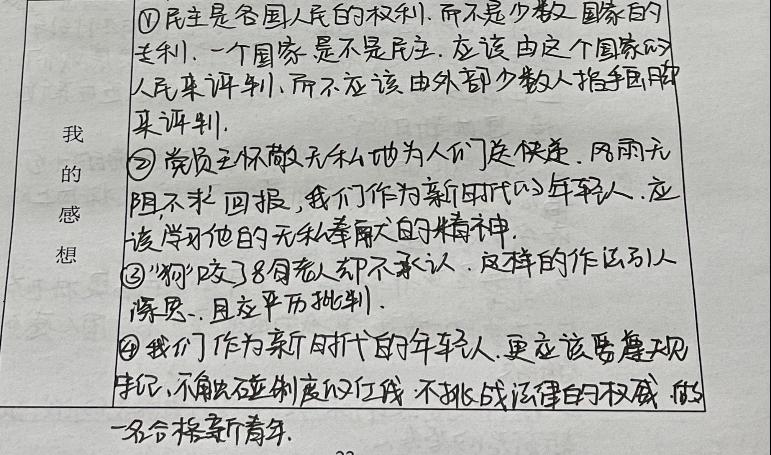 ①民主是各国人民的权利.而不是少数国家的
专利.一个国家是不是民主.应该由这个国家的
人民来评判、而不应该由外部少数人指手画脚
来评判.
我的感想
②党员王怀敬无私地为人们送快递.风雨无
阻,不求回报,我们作为新时代的年轻人.应
该学习他的无私奉献的精神.
③"狗"咬了8旬老人却不承认.这样的作法引人
深思.且应严厉批判.
④我们作为新时代的年轻人.更应该要遵规
守纪、不触碰制度的红线.不挑战法律的权威.做
一名合格新青年.